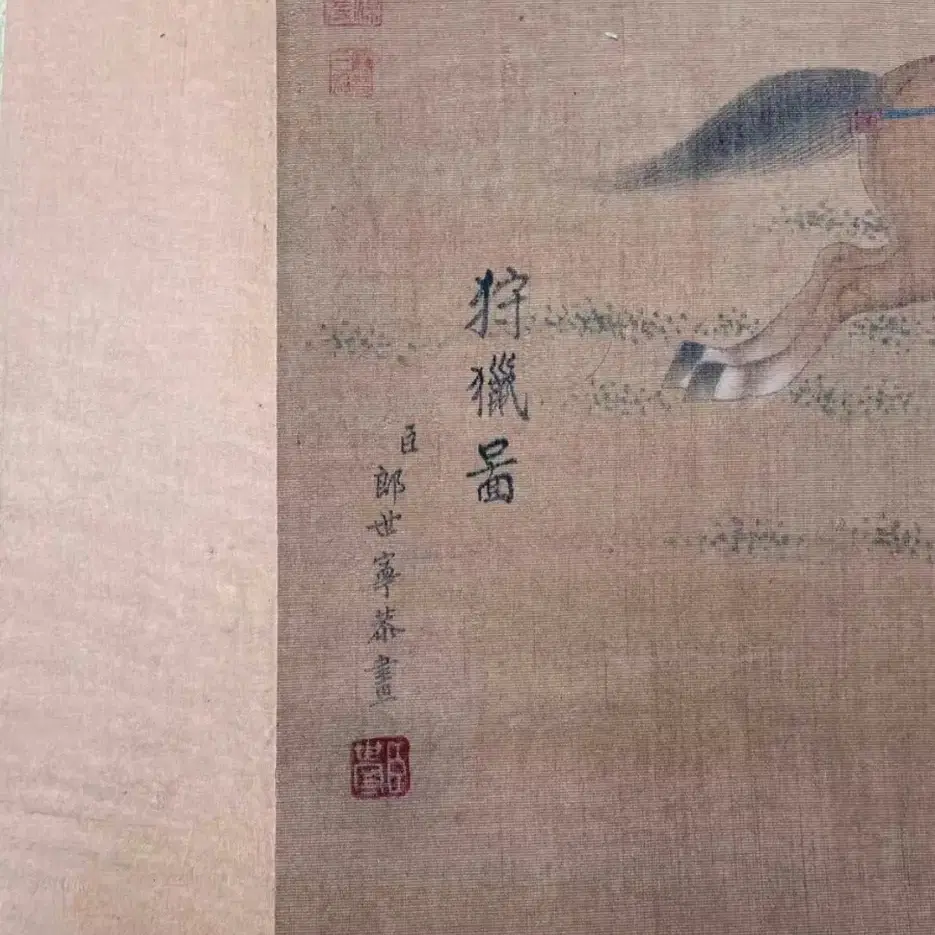 狩獵啚
臣郎世寧恭畫